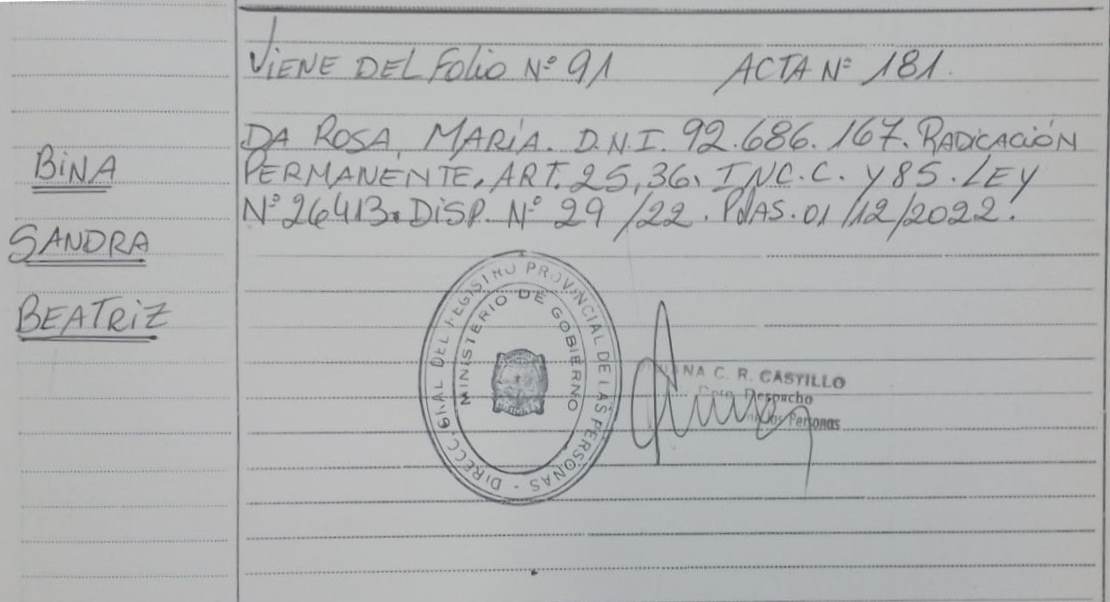 VIENE DEL FOLIO Nº 91 ACTA Nº 181.
DA ROSA, MARÍA. D.N.I. 92.686.167. RADICACIÓN
PERMANENTE, ART. 25, 36, INC. C. Y 85. LEY
Nº 26413. DISP. Nº 29/22. PDAS. 01/12/2022.
BINA
SANDRA
BEATRIZ
DIRECC. GRAL DEL REGISTRO PROVINCIAL DE LAS PERSONAS -
MINISTERIO DE GOBIERNO
NA C. R. CASTILLO
Despacho
Personas